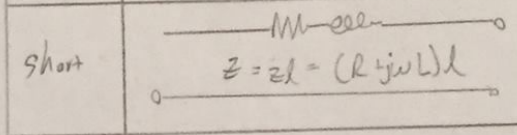 short
Z = zl = (R+jwL)l